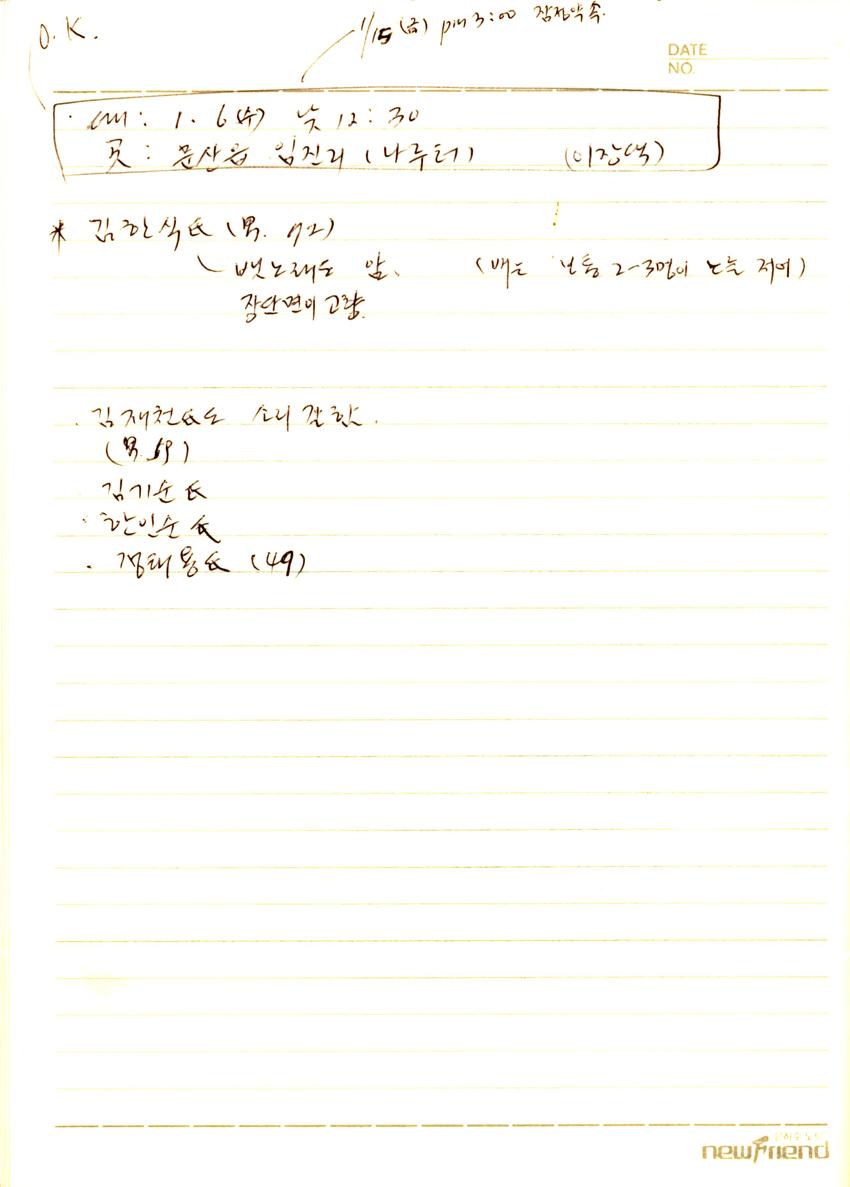 O.K.
1/15 (금) pm 3:00 잠정약속.
DATE
NO.
· 때: 1. 6(수) 낮 12:30
곳: 문산읍 임진리 (나루터) (이장댁)
* 김한식氏 (男. 92)
뱃노래도 앎. (배는 보통 2-3명이 노를 저어)
장단면이 고향.
· 김재천氏도 소리 잘함.
(男. 59)
· 김기순氏
· 한인순氏
· 태용氏 (49)
newfriend